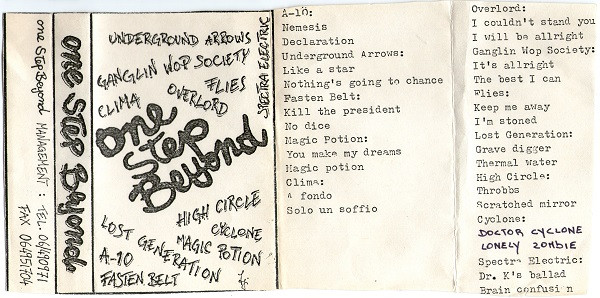 one Step Beyond MANAGEMENT: TEL. 06/490971
FAX 06495704
one Step Beyond
UNDERGROUND ARROWS
GANGLIN WOP SOCIETY
CLIMA
OVERLORD
FLIES
SPECTRA ELECTRIC
one
Step
Beyond
HIGH CIRCLE
CYCLONE
LOST GENERATION
MAGIC POTION
A-10
FASTEN BELT
A-10:
Nemesis
Declaration
Underground Arrows:
Like a star
Nothing's going to chance
Fasten Belt:
Kill the president
No dice
Magic Potion:
You make my dreams
Magic potion
Clima:
A fondo
Solo un soffio
Overlord:
I couldn't stand you
I will be alright
Ganglin Wop Society:
It's alright
The best I can
Flies:
Keep me away
I'm stoned
Lost Generation:
Grave digger
Thermal water
High Circle:
Throbbs
Scratched mirror
Cyclone:
DOCTOR CYCLONE
LONELY ZOMBIE
Spectra Electric:
Dr. K's ballad
Brain confusion